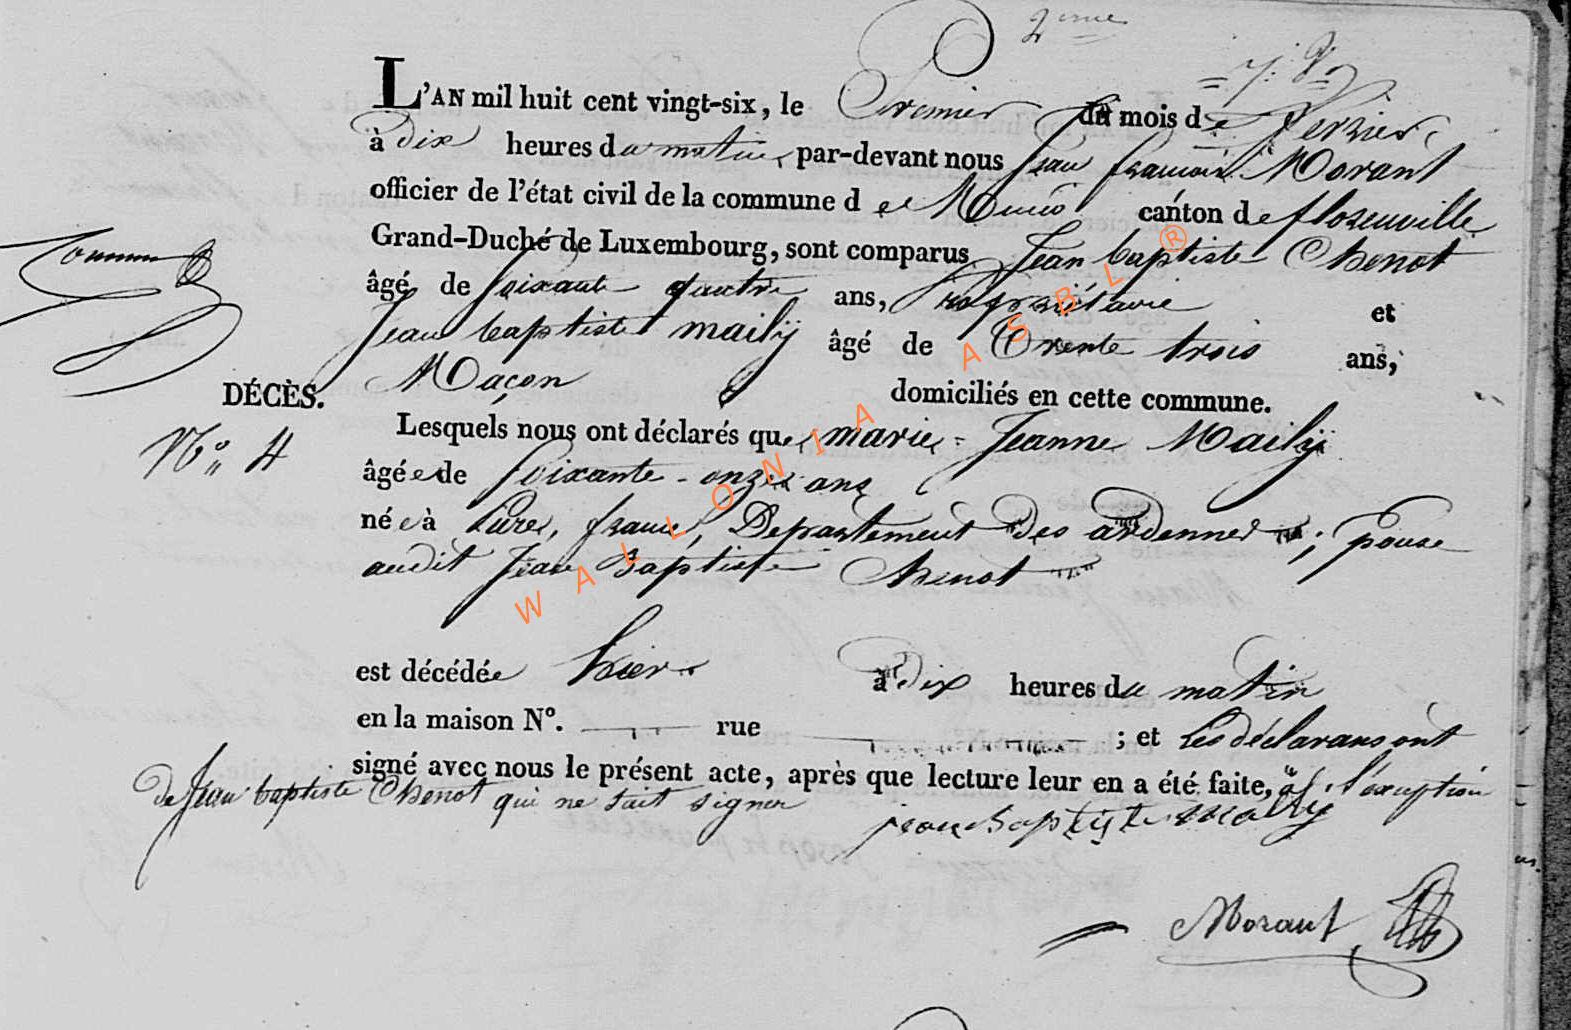 2eme
L'AN mil huit cent vingt-six, le Premier du mois de fevrier
à dix heures du matin, par-devant nous Jean francois Morant
officier de l'état civil de la commune de Muno canton de florenville
Grand-Duché de Luxembourg, sont comparus Jean baptiste Chenot
âgé de soixante quatre ans, Propriétaire et
Jean baptiste mailÿ âgé de trente trois ans,
Maçon domiciliés en cette commune.
DÉCÈS.
N° 4
Lesquels nous ont déclarés que marie-Jeanne Mailÿ
âgée de soixante-onze ans
née à Pure, france, Departement des ardennes; Epouse
audit Jean Baptiste Chenot
est décédée hier à dix heures du matin
en la maison N°. rue ; et les déclarans ont
signé avec nous le présent acte, après que lecture leur en a été faite, à l'exception
de Jean baptiste Chenot qui ne sait signer
jean baptiste mailly
Morant
WALLONIA ASBL ®